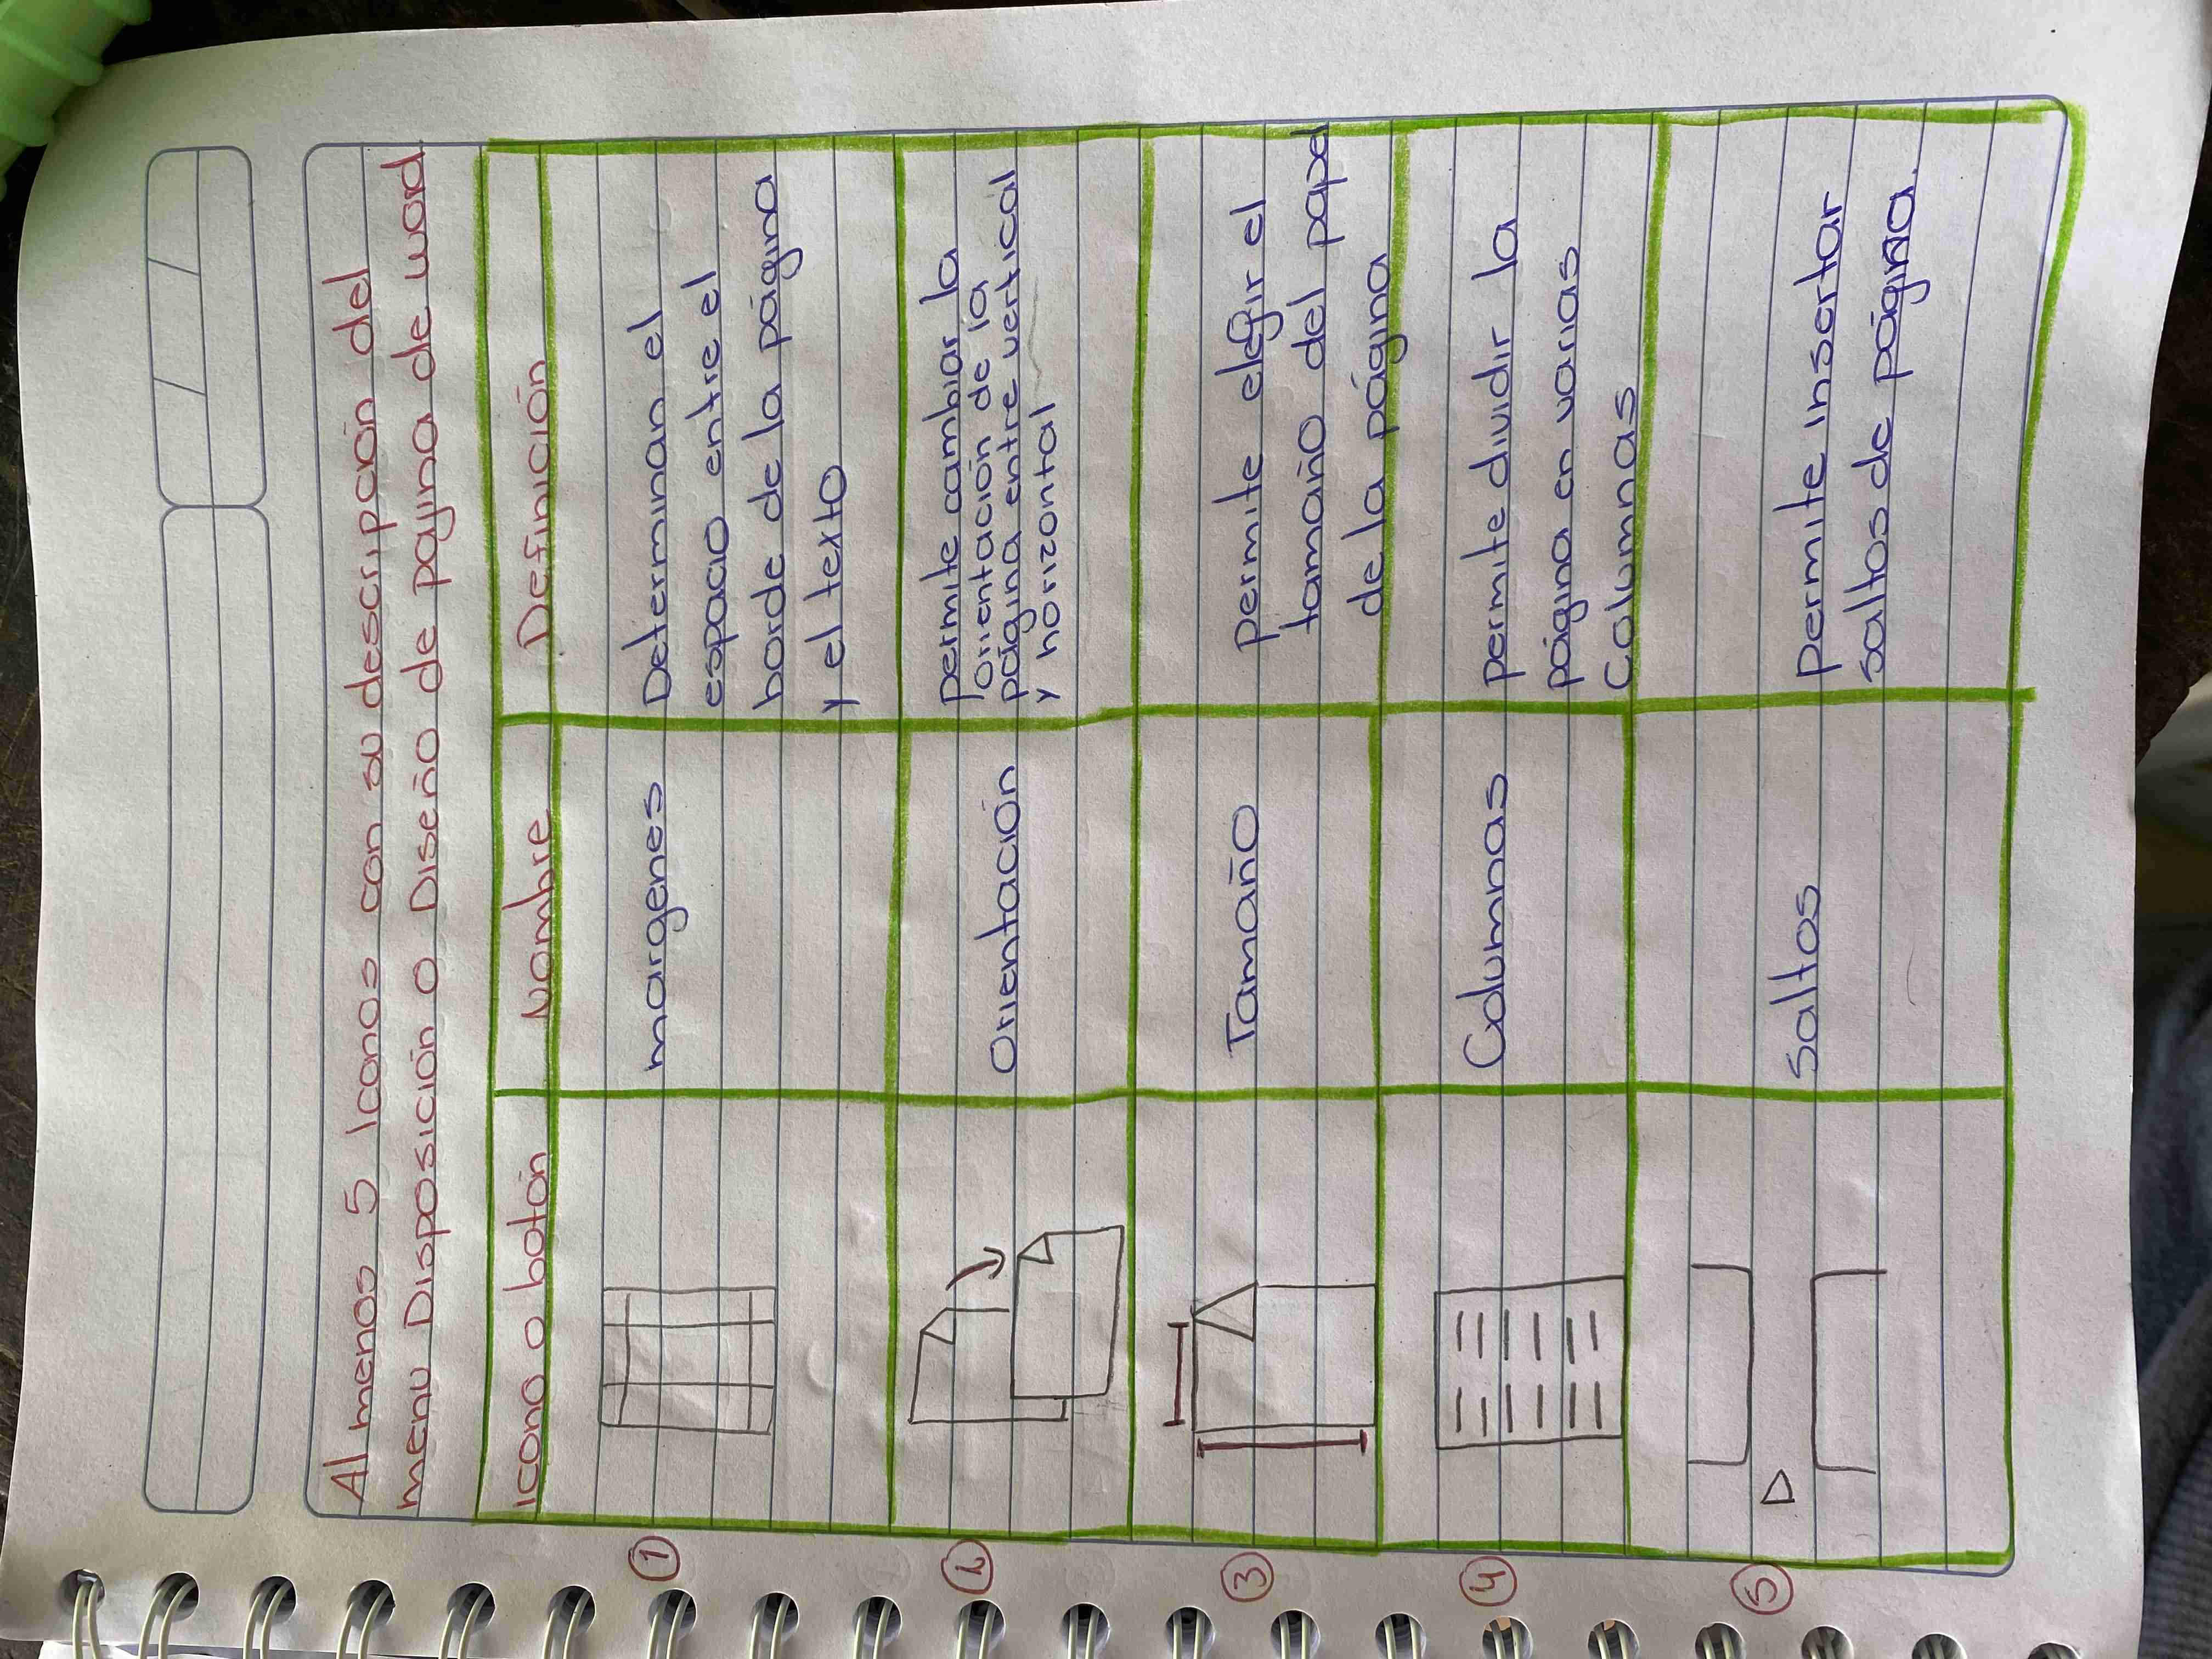 Al menos 5 Iconos con su descripción del
menu Disposición o Diseño de página de word
icono o botón Nombre Definición
① margenes Determinan el
espacio entre el
borde de la página
y el texto
② Orientación permite cambiar la
orientación de la
página entre vertical
y horizontal
③ Tamaño permite elegir el
tamaño del papel
de la página
④ Columnas permite dividir la
página en varias
Columnas
⑤ saltos permite insertar
saltos de página.